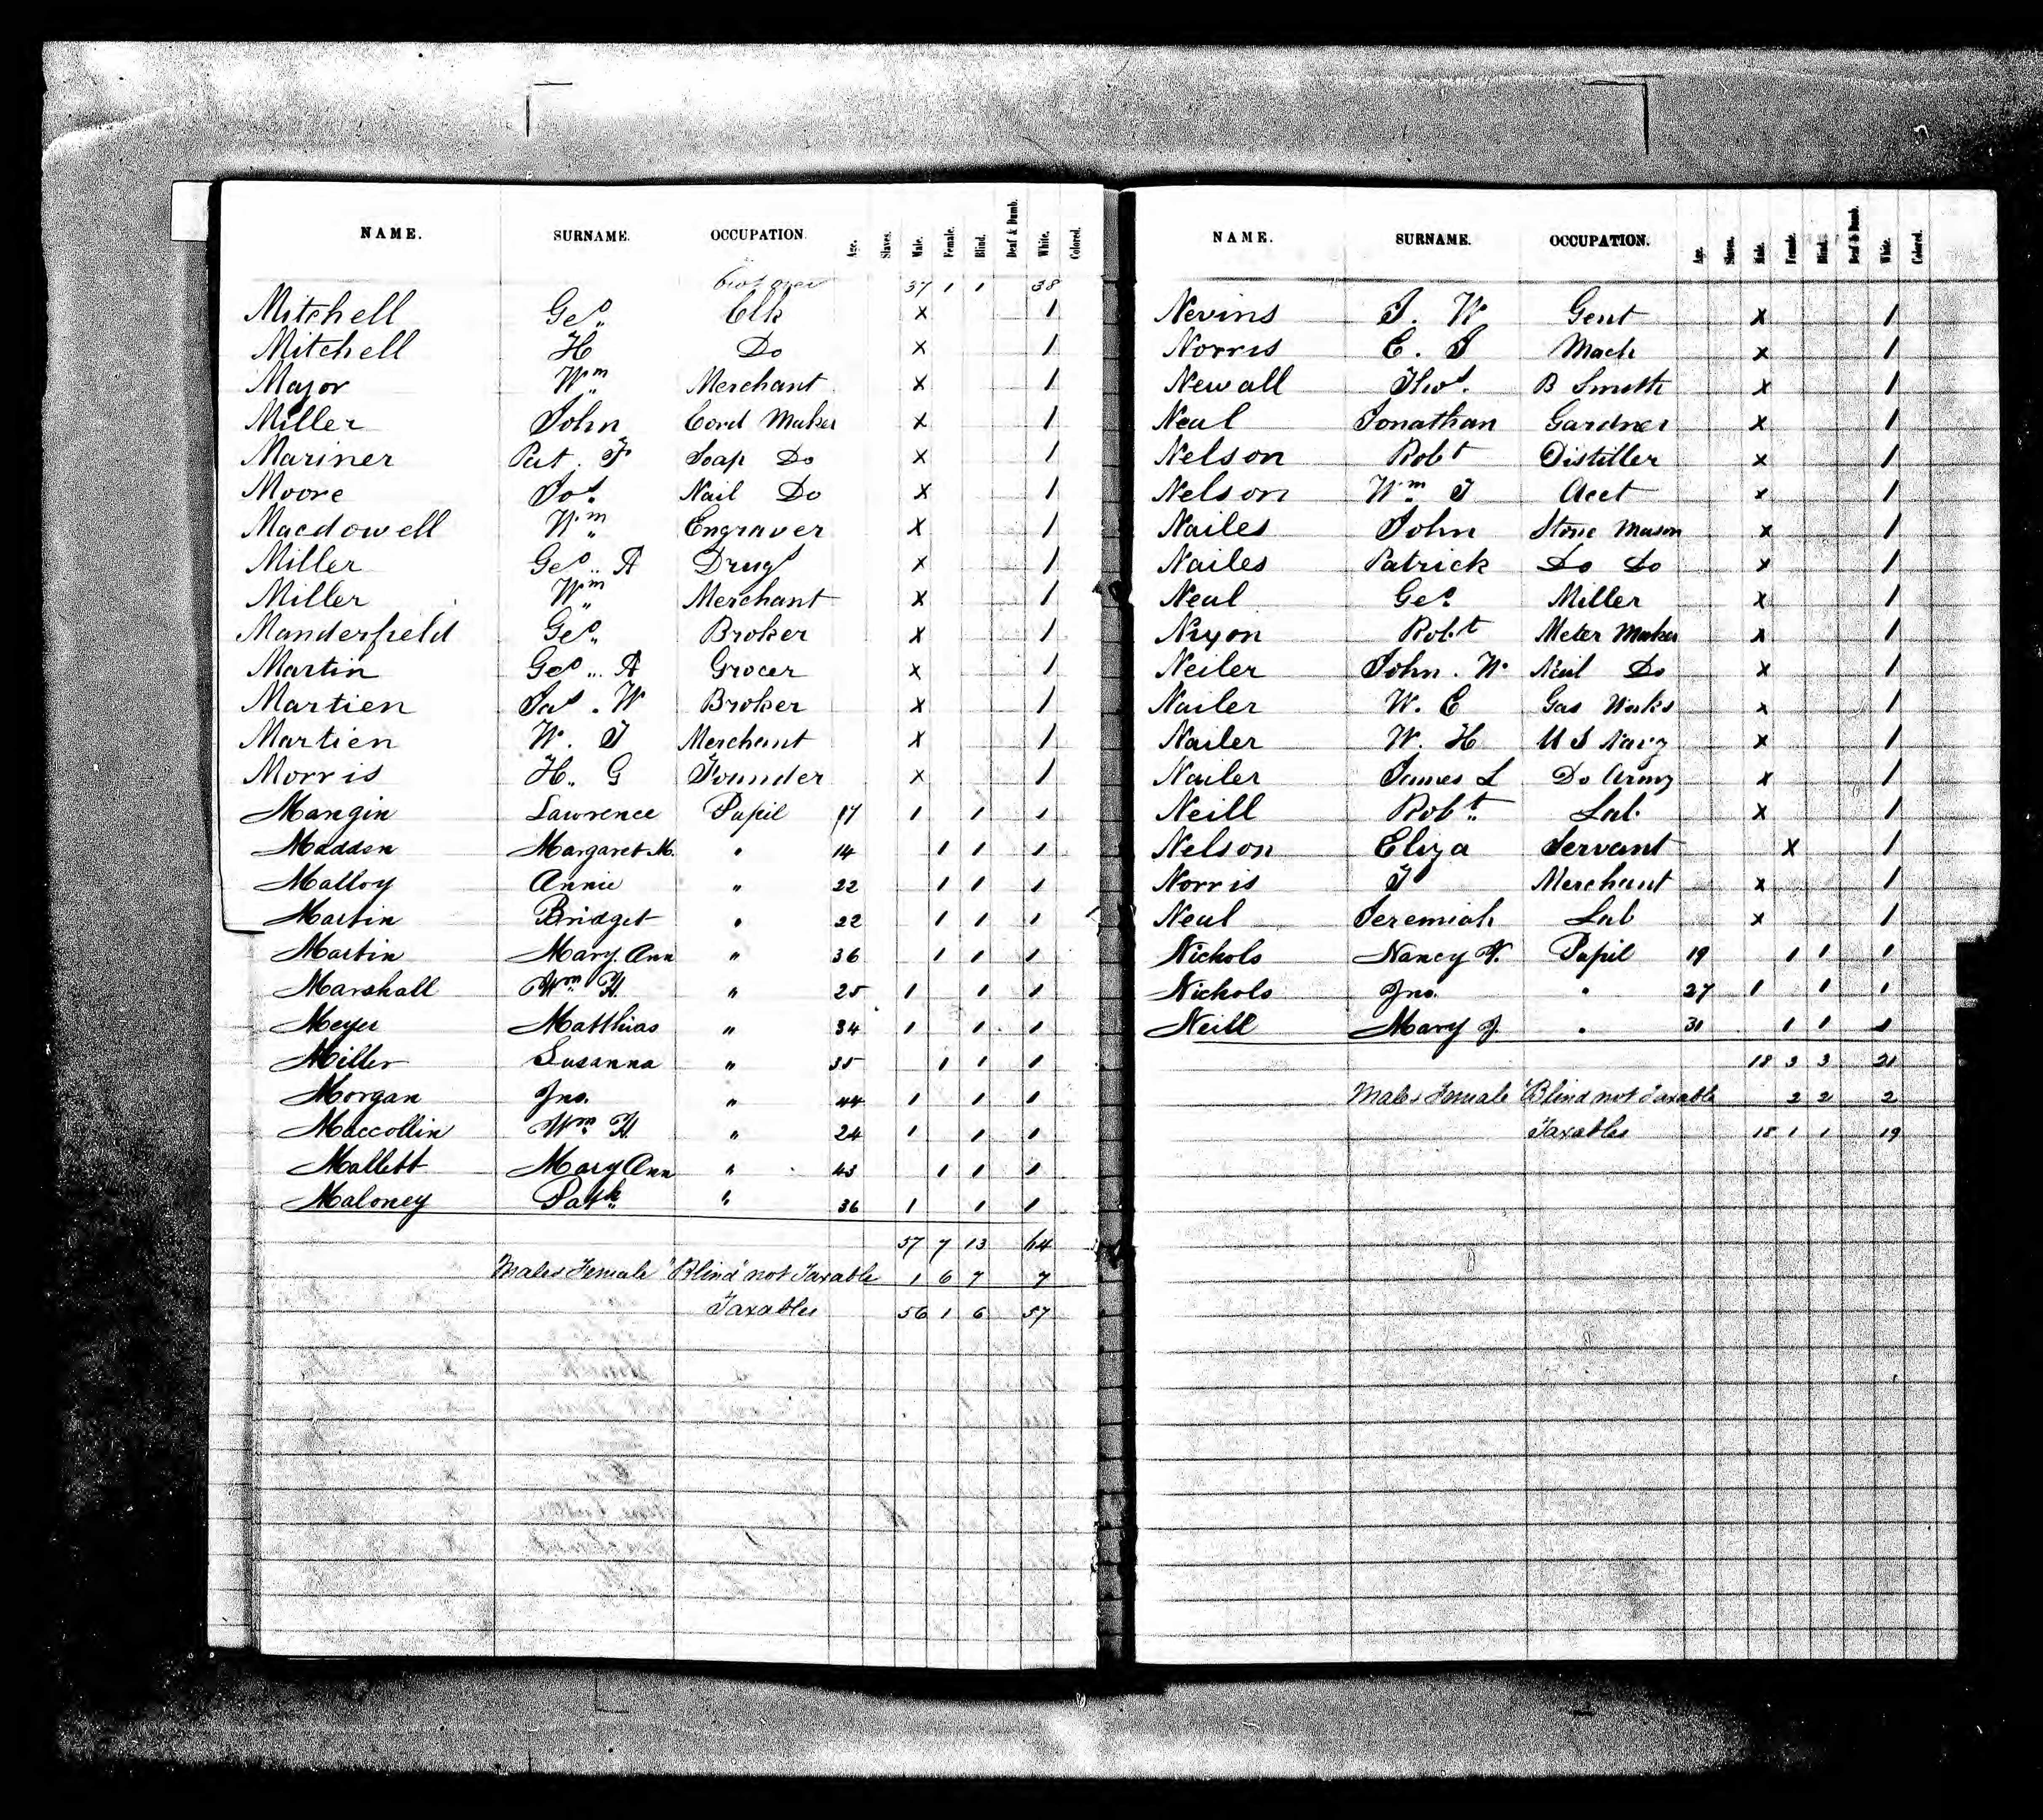 NAME. SURNAME. OCCUPATION. Age. Slaves. Male. Female. Blind. Deaf & Dumb. White. Colored.
37 1 1 38
Mitchell Geo. Clk x 1
Mitchell H Do x 1
Major Wm Merchant x 1
Miller John Cord Maker x 1
Mariner Pat. F Soap Do x 1
Moore Jos. Nail Do x 1
Macdowell Wm Engraver x 1
Miller Geo. A Drugs x 1
Miller Wm Merchant x 1
Manderfield Geo. Broker x 1
Martin Geo. A Grocer x 1
Martien Jas. W Broker x 1
Martien W. J Merchant x 1
Morris H. G Founder x 1
Mangin Lawrence Pupil 17 1 1 1
Madden Margaret M. " 14 1 1 1
Malloy Annie " 22 1 1 1
Martin Bridget " 22 1 1 1
Martin Mary Ann " 36 1 1 1
Marshall Wm H. " 25 1 1 1
Meyer Matthias " 34 1 1 1
Miller Susanna " 35 1 1 1
Morgan Jno. " 44 1 1 1
Maccollin Wm H. " 24 1 1 1
Mallett Mary Ann " 43 1 1 1
Maloney Patk. " 36 1 1 1
57 7 13 64
Males Female "Blind" not Taxable 1 6 7 7
Taxables 56 1 6 57
NAME. SURNAME. OCCUPATION. Age. Slaves. Male. Female. Blind. Deaf & Dumb. White. Colored.
Nevins J. W Gent x 1
Norris C. J Mach x 1
Newall Thos. B Smith x 1
Neal Jonathan Gardner x 1
Nelson Robt Distiller x 1
Nelson Wm J Acct x 1
Nailes John Stone Mason x 1
Nailes Patrick Do Do x 1
Neal Geo. Miller x 1
Nixon Robt Meter Maker x 1
Neiler John. W Nail Do x 1
Nailer W. C Gas Works x 1
Nailer W. H U S Navy x 1
Nailer James L Do Army x 1
Neill Robt. Lab. x 1
Nelson Eliza Servant x 1
Norris J Merchant x 1
Neal Jeremiah Lab x 1
Nichols Nancy N. Pupil 19 1 1 1
Nichols Jno. " 27 1 1 1
Neill Mary J. " 31 1 1 1
18 3 3 21
Males Female "Blind not Taxable 2 2 2
Taxables 18 1 1 19